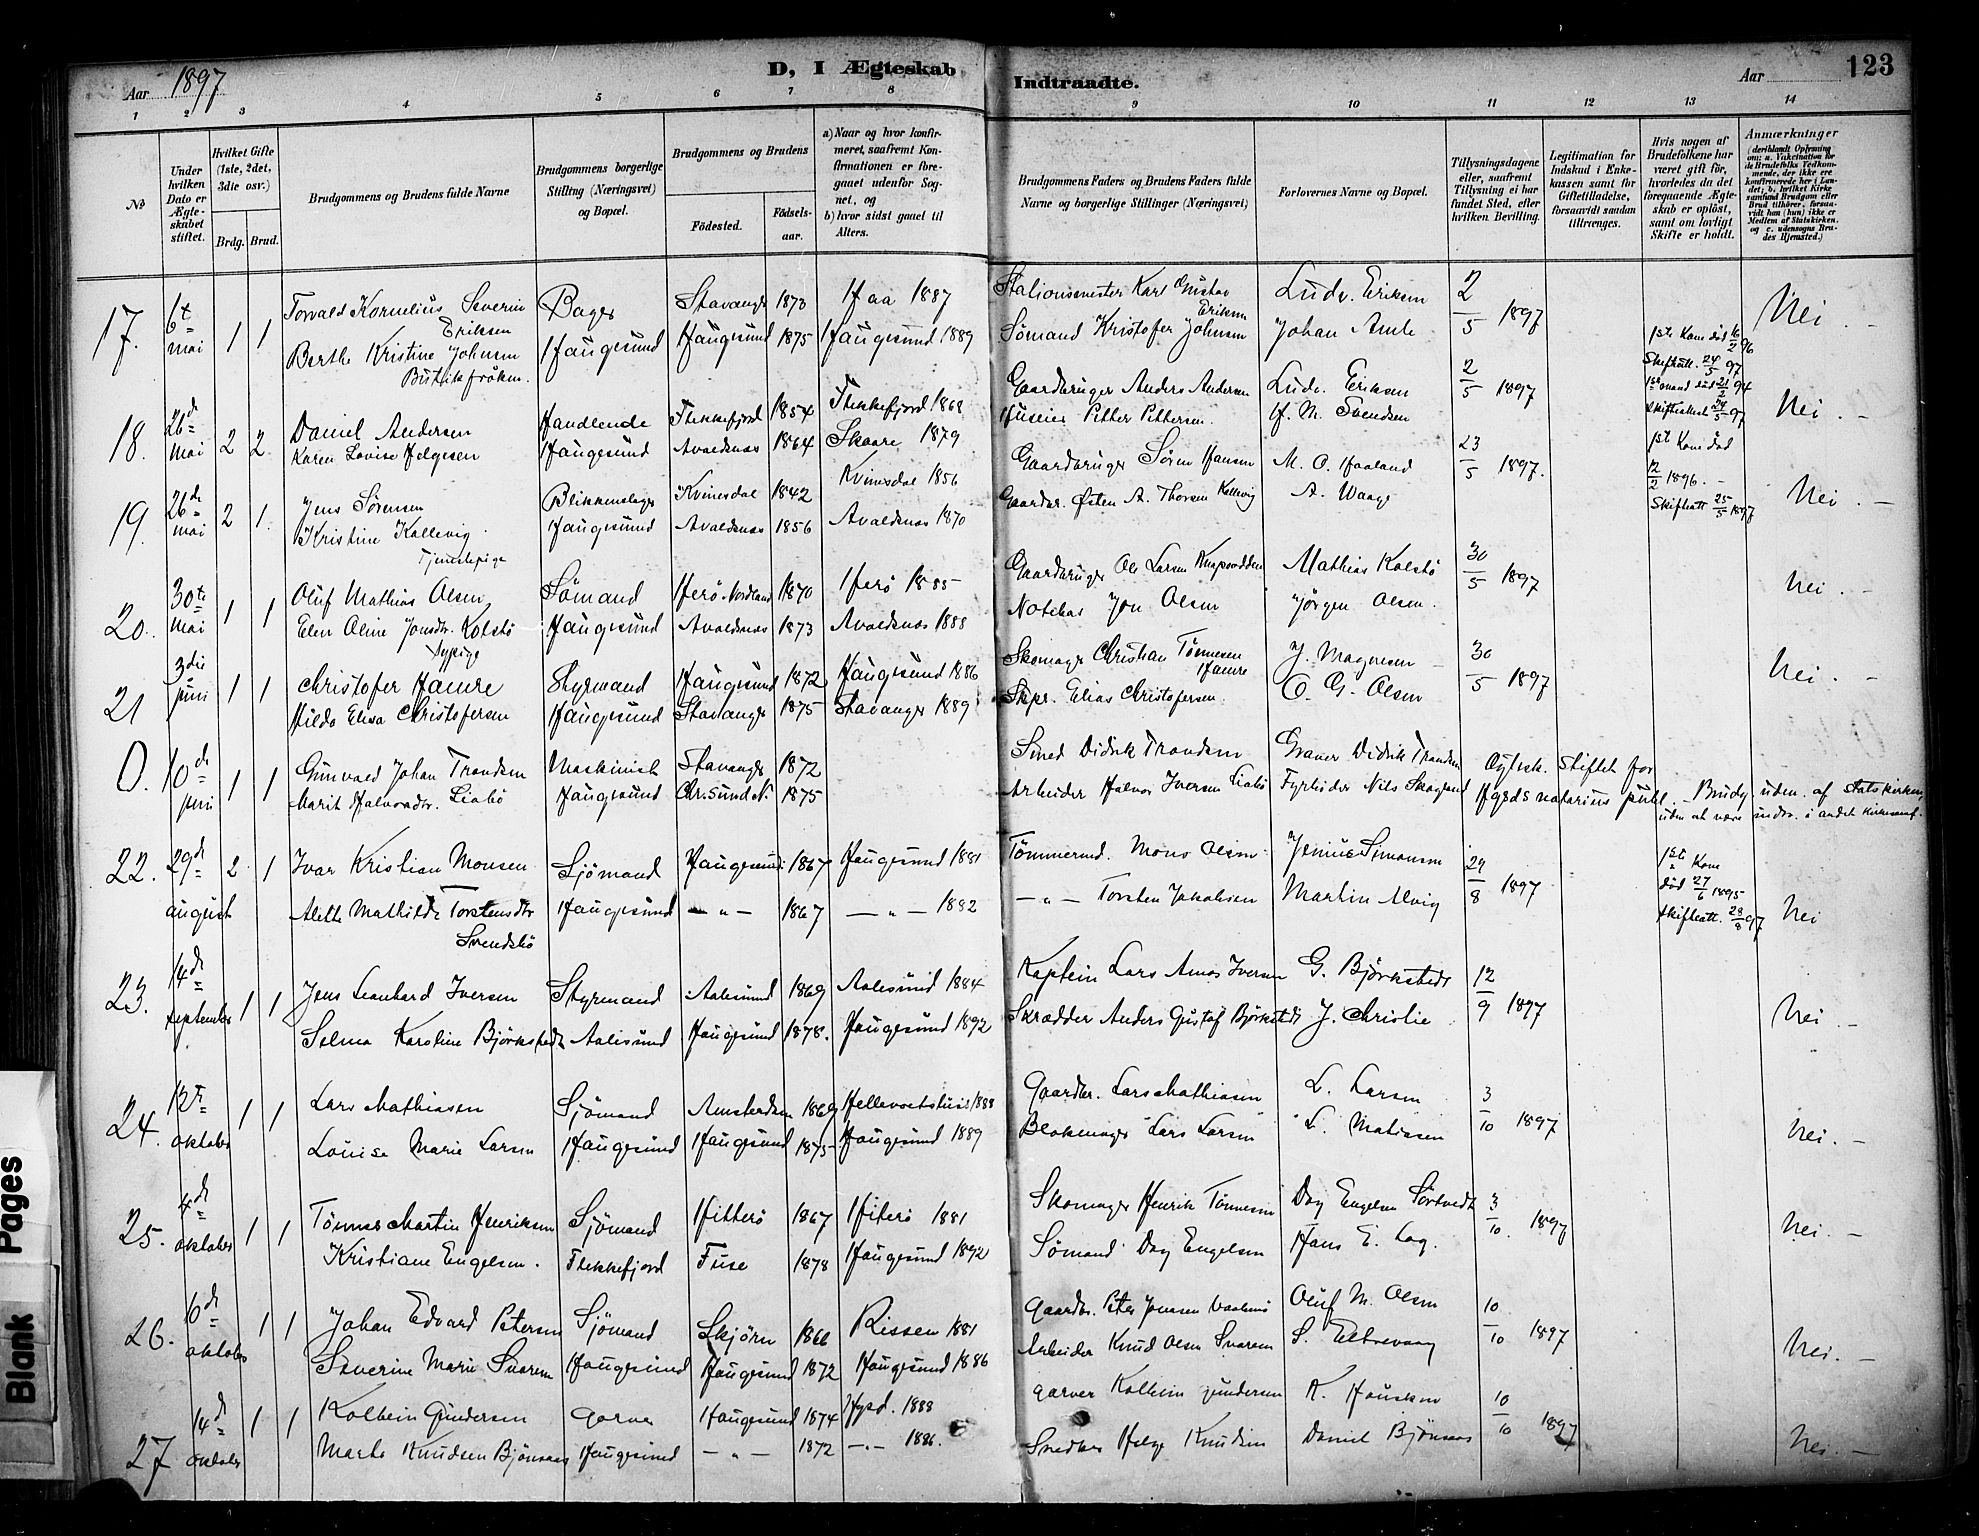 Aar 1897
D, I Ægteskab
Indtraadte.
Aar
123
1 2 3 4 5 6 7 8 9 10 11 12 13 14
No
Under hvilken Dato er Ægteskabet stiftet.
Hvilket Gifte (1ste, 2det, 3die osv.)
Brdg. Brud.
Brudgommens og Brudens fulde Navne
Brudgommens borgerlige Stilling (Næringsvei) og Bopæl.
Brudgommens og Brudens
Fødested.
Fødselsaar.
a) Naar og hvor konfirmeret, saafremt Konfirmationen er foregaaet udenfor Sognet, og
b) hvor sidst gaaet til Alters.
Brudgommens Faders og Brudens Faders fulde Navne og borgerlige Stillinger (Næringsvei)
Forlovernes Navne og Bopæl.
Tillysningsdagene eller, saafremt Tillysning ei har fundet Sted, efter hvilken Bevilling.
Legitimation for Indskud i Enkekassen samt for Giftetilladelse, forsaavidt saadan tiltrænges.
Hvis nogen af Brudefolkene har været gift før, hvorledes da det foregaaende Ægteskab er opløst, samt om lovligt Skifte er holdt.
Anmærkninger (deriblandt Oplysning om: a. Vakcination for de Brudefolks Vedkommende, der ikke ere konfirmerede her i Landet; b. hvilket Kirkesamfund Brudgom eller Brud tilhører, forsaavidt han (hun) ikke er Medlem af Statskirken, og c. udensogns Brudes Hjemsted.)
17. 6t mai 1 1 Torvald Kornelius Severin Eriksen Bager Stavanger 1873 Haa 1887 Stationsmester Karl Gustav Eriksen Ludv. Eriksen 2/5 1897 Nei. -
Berthe Kristine Johnsen Haugesund Haugesund 1875 Haugesund 1889 Sømand Kristofer Johnsen Johan Amle
Butikfrøken.
18. 26de mai 2 2 Daniel Andersen Handlende Flekkefjord 1854 Flekkefjord 1868 Gaardbruger Anders Andersen Ludv. Eriksen 2/5 1897 1ste Kone død 16/2 96 Skifteatt. 24/5 97 Nei. -
Karen Lovise Helgesen Haugesund Avaldsnæs 1864 Skaare 1879 Huseier Petter Pettersen. H. M. Svendsen 1ste mand død 21/2 94 Skifteattest 24/5 97
19. 26de mai 2 1. Jens Sørensen Blikkenslager Kvinesdal 1842 Kvinesdal 1856 Gaardbruger Søren Hansen M. O. Haaland 23/5 1897. 1ste Kone død 12/2 1896. - Nei. -
Kristine Kallevig Haugesund Avaldsnæs 1856 Avaldsnæs 1870 Gaardbr. Østen A. Thorsen Kallevig A. Waage Skifteatt 25/5 1897
Tjenestepige
20. 30te mai 1 1 Oluf Mathias Olsen Sømand Herø Nordland 1870 Herø 1885 Gaardbruger Ole Larsen Mathias Kolstø 30/5 1897 Nei. -
Elen Oline Jonsdtr. Kolstø Haugesund Avaldsnæs 1873 Avaldsnæs 1888 Notebas Jon Olsen Jørgen Olsen.
Sypige
21 3die juni 1 1 Christofer Hamre Styrmand Haugesund 1872 Haugesund 1886 Skomager Christian Tønnesen Hamre J. Magnesen 30/5 1897 Nei. -
Hilda Elisa Christofersen Haugesund Stavanger 1875 Stavanger 1889 Skpr. Elias Christofersen. O. G. Olsen
0. 10de juni 1 1 Gunvald Johan Trondsen Maskinist Stavanger 1872 Smed Didrik Trondsen Graver Didrik Trondsen Ægtesk. stiftet for
Marit Halvorsdtr. Liabø Haugesund Chr.sund N. 1875 Arbeider Halvor Iversen Liabø Fyrbøder Nils Skogland Hgsds notarius publ. - Brudg. uden. af statskirken, uden at være indtr. i andet kirkesamf.
22. 29de august 2 1 Ivar Kristian Monsen Sjømand Haugesund 1867 Haugesund 1881 Tømmermd. Mons Olsen Jenius Simonsen 29/8 1897 1ste Kone død 27/6 1895
Aleth Mathilde Torstensdtr Svendsbø Haugesund — " — 1867 — " — 1882 — " — Torsten Jakobsen Martin Alvig Skifteatt. 28/8 97 Nei
23. 14de september 1 1 Jens Leonhard Iversen Styrmand Aalesund 1869 Aalesund 1884 Kaptein Lars Amos Iversen G. Bjørkstedt 12/9 1897 Nei. -
Selma Karoline Bjørkstedt Aalesund Haugesund 1878. Haugesund 1892 Skrædder Anders Gustaf Bjørkstedt J. Christie
24. oktober 1 1 Lars Mathiasen Sjømand Amsterdam 1869 Hellevoetsluis 1888 Gaardbr. Lars Mathiasen L. Larsen 3/10 1897 Nei. -
Louise Marie Larsen Haugesund Haugesund 1875 Haugesund 1889 Blokmager Lars Larsen L. Matiasen
25. 4de oktober 1 1 Tønnes Martin Henriksen Sjømand Hitterø 1867 Hiterø 1881 Skomager Henrik Tønnesen Dag Engelsen Sørtvedt 3/10. 1897 Nei. -
Kristiane Engelsen. Flekkefjord Fuse 1878 Haugesund 1892 Sømand Dag Engelsen Hans E. Lag.
26. 6de oktober 1 1 Johan Edvard Petersen Sjømand Skjørn 1866 Rissen 1881 Gaardbr. Peter Jensen Oluf M. Olsen 10/10 1897 Nei. -
Severine Marie Svarem Haugesund Haugesund 1872 Haugesund 1886 Arbeider Knud Olsen Svarem S. Eltrevaag
27 14de oktober 1 1 Kolbein Gundersen Garver Haugesund 1874 Hgsd. 1888 Garver Kolbein Gundersen K. Hausken 10/10 1897 Nei. -
Marta Knudsen Bjønsaas Haugesund — " — 1872 — " — 1886. Snedker Helge Knudsen Daniel Bjønsaas
Blank Pages